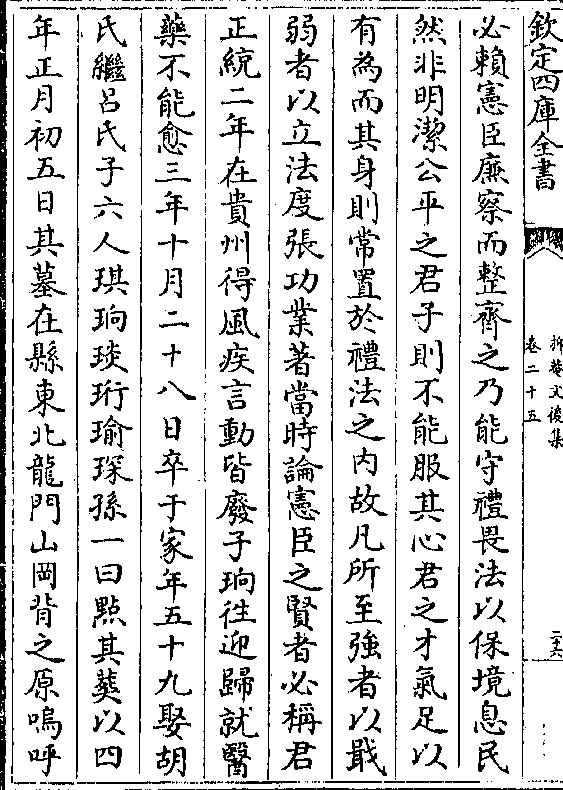 欽定四庫全書
抑菴文後集
卷二十五
二六
必賴憲臣廉察而整齊之乃能守禮畏法以保境息民
然非明潔公平之君子則不能服其心君之才氣足以
有為而其身則常置於禮法之內故凡所至強者以戢
弱者以立法度張功業著當時論憲臣之賢者必稱君
正統二年在貴州得風疾言動皆廢子珦往迎歸就醫
藥不能愈三年十月二十八日卒于家年五十九娶胡
氏繼呂氏子六人琪珦琰珩瑜琛孫一曰㸃其葬以四
年正月初五日其墓在縣東北龍門山岡背之原嗚呼